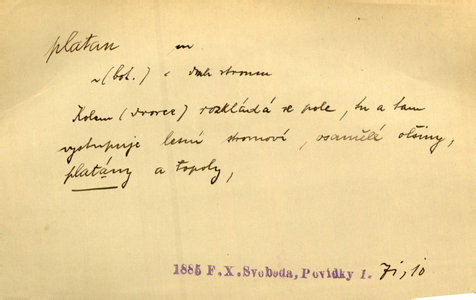 platan m
~ (bot.) = druh stromu
Kolem (dvorce) rozkládá se pole, tu a tam
vystupuje lesní stromoví, osamělé olšiny,
platány a topoly,
1885 F. X. Svoboda, Povídky 1. 71,10